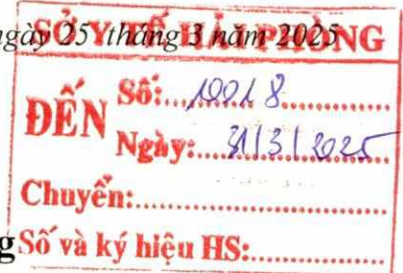 ngày 25 tháng 3 năm 2025
SỞ Y TẾ HẢI PHÒNG
ĐẾN
Số:....10018............
Ngày:....31/3/2025
Chuyển:...............................
g
Số và ký hiệu HS:..................